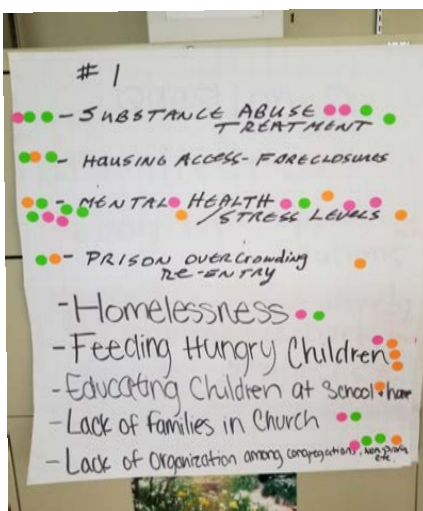 # 1
- SUBSTANCE ABUSE
TREATMENT
- HOUSING ACCESS - FORECLOSURES
- MENTAL HEALTH
/STRESS LEVELS
- PRISON OVERCROWDING
RE-ENTRY
- Homelessness
- Feeding Hungry Children
- Educating Children at School + home
- Lack of families in Church
- Lack of Organization among congregations, non-profits
etc.